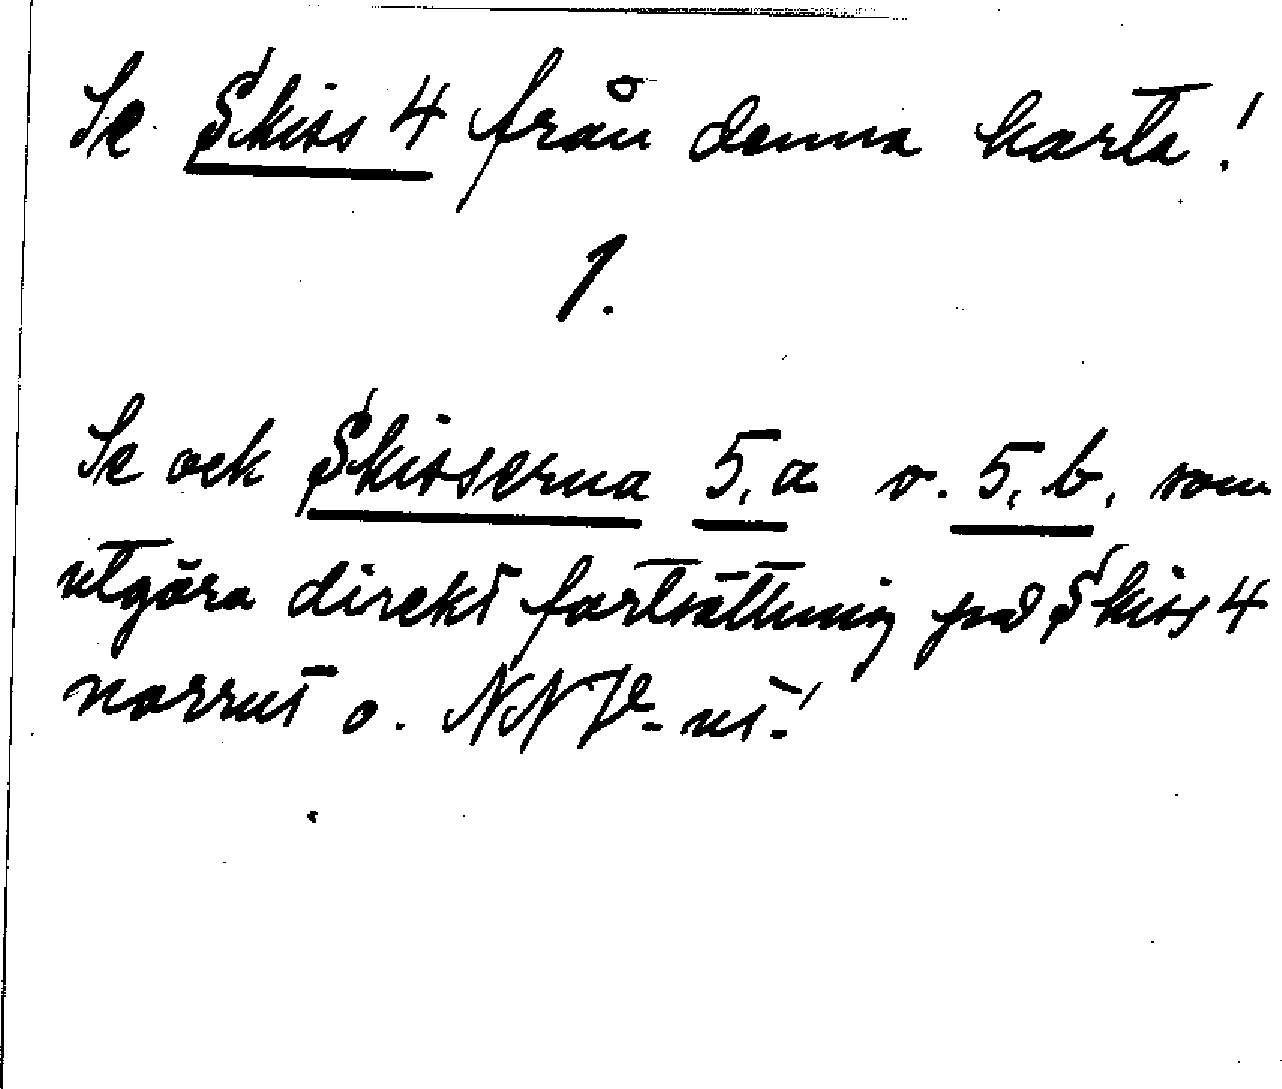 Se Skiss 4 från denna karta!
1.
Se ock Skisserna 5,a o. 5,b, som
utgöra direkt fortsättning på Skiss 4
norrut o. NNV-ut!